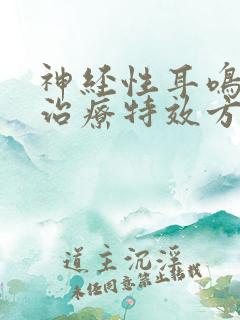 神经性耳鸣
治疗特效方
道主沉淫
未经同意禁止转载